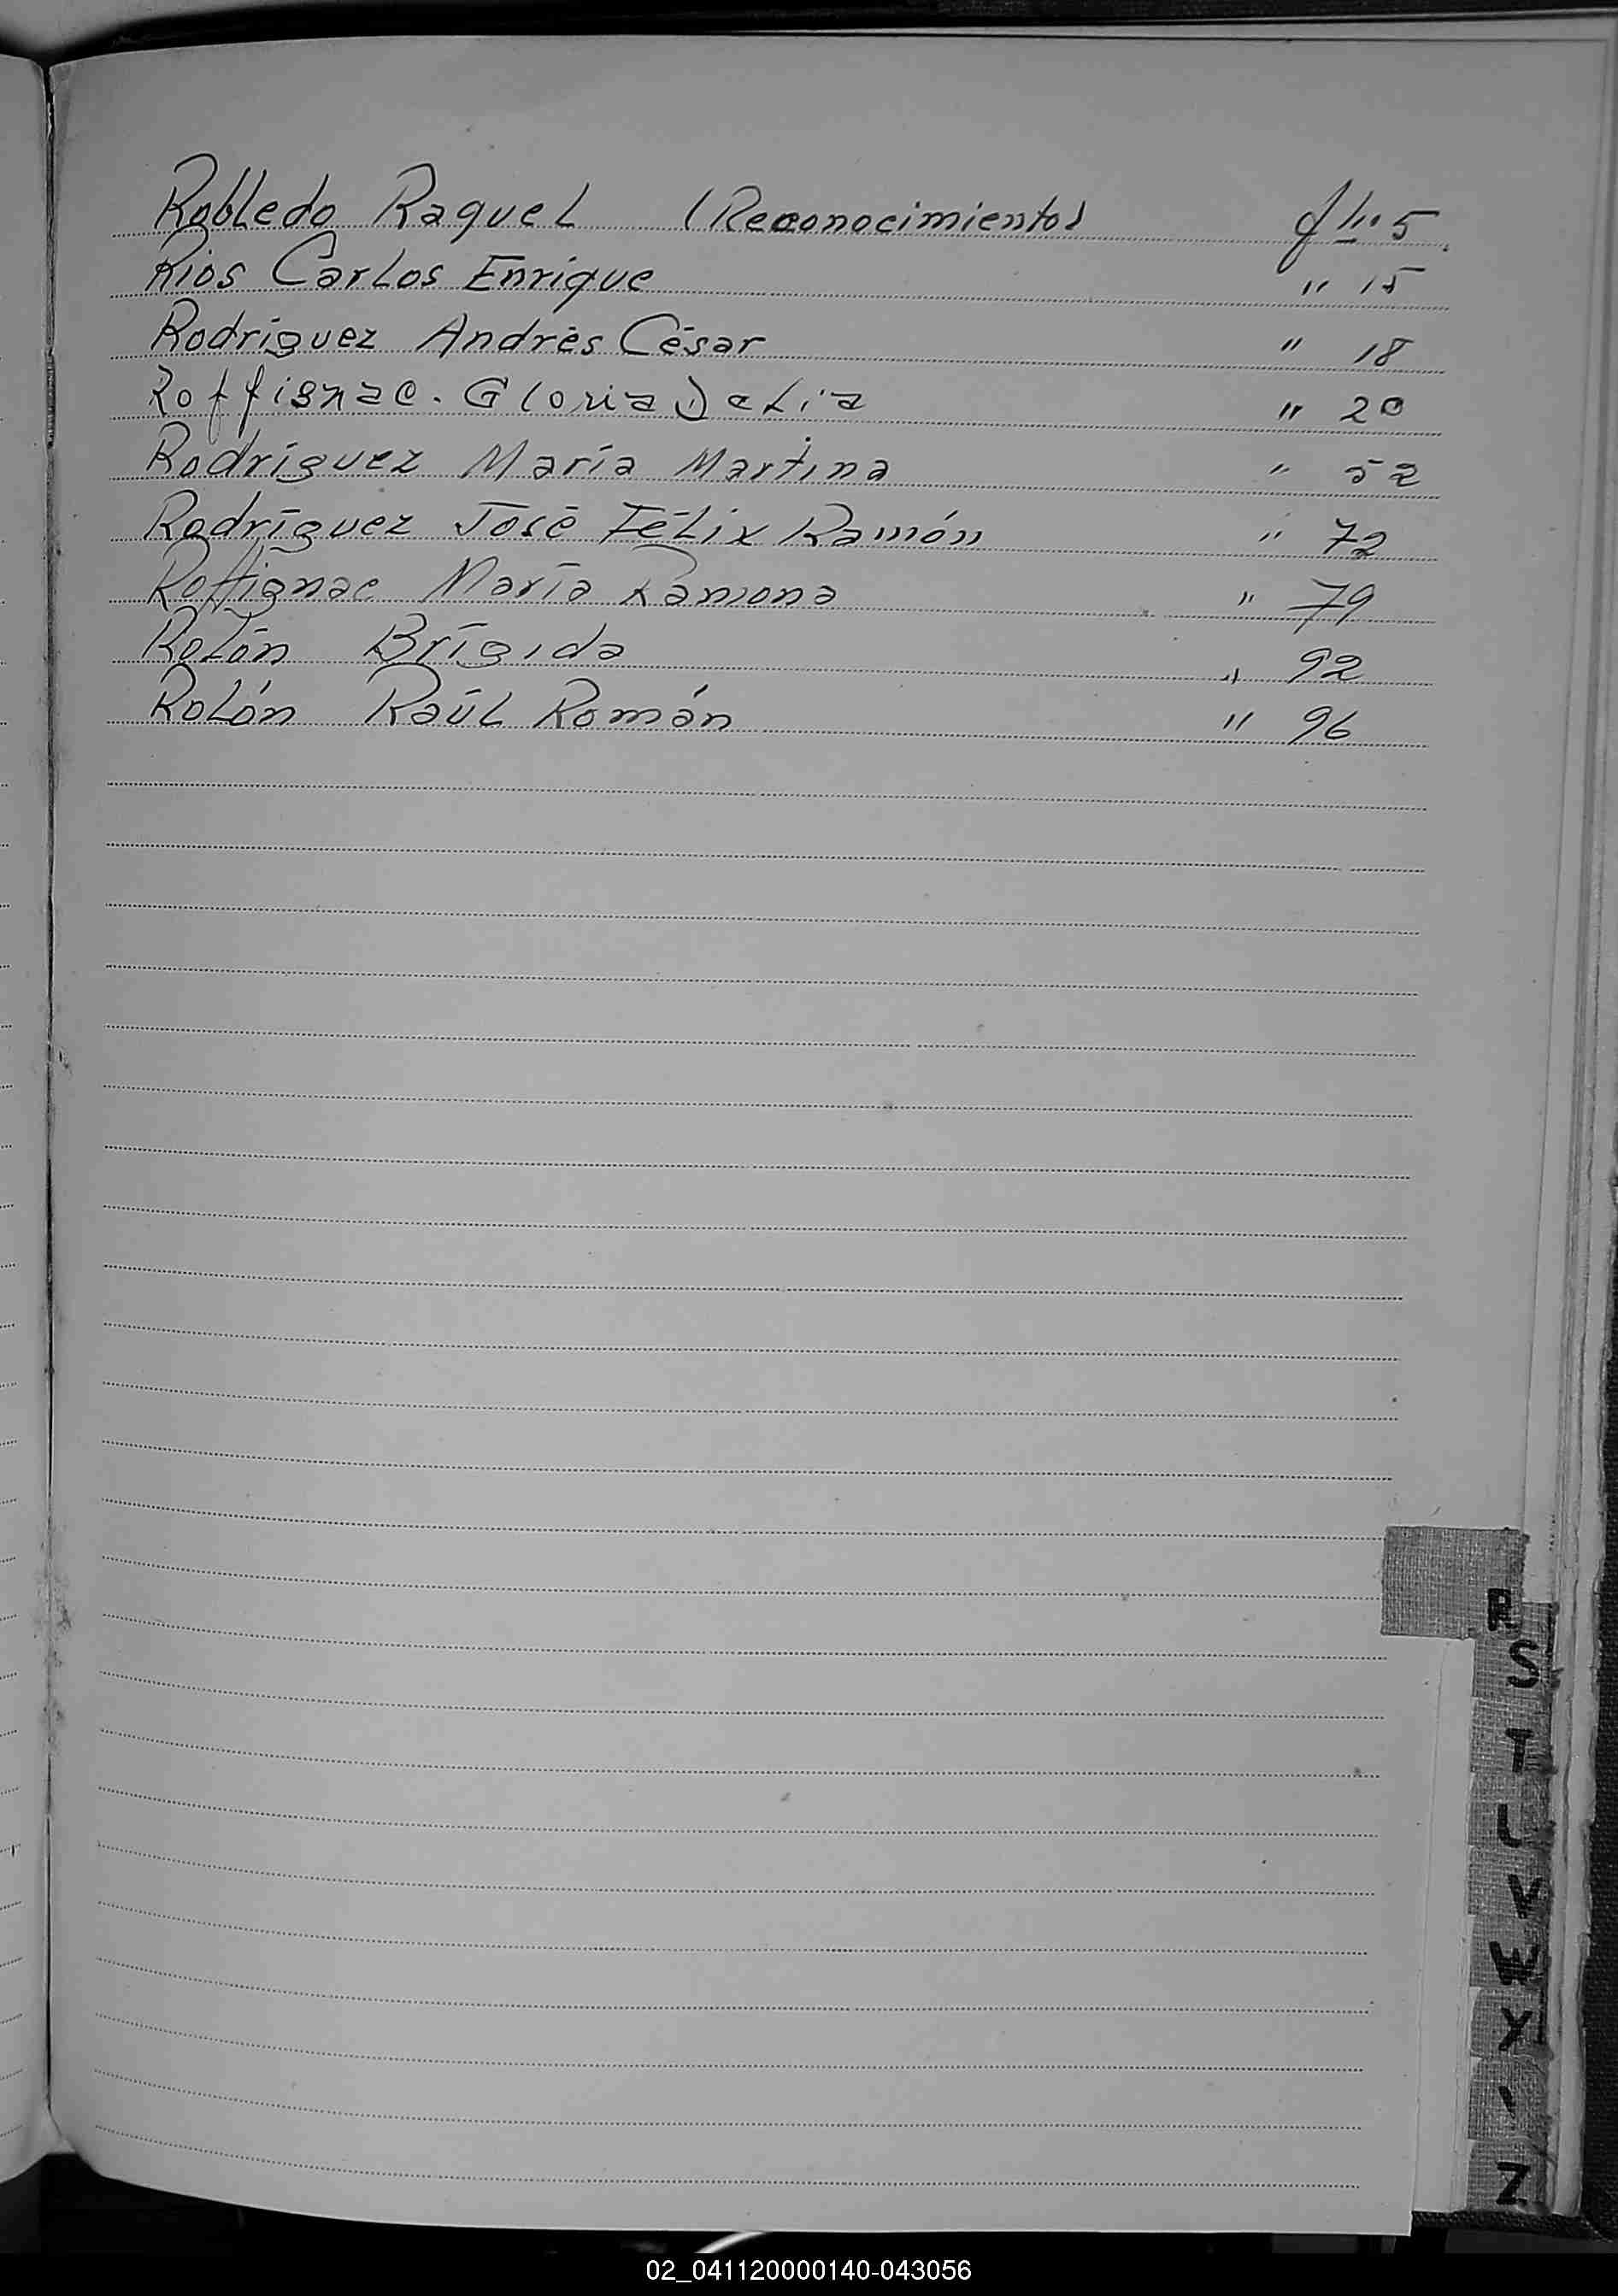 Robledo Raquel (Reconocimiento) flio 5
Rios Carlos Enrique " 15
Rodríguez Andrés César " 18
Roffignac. Gloria Delia " 20
Rodríguez María Martina " 52
Rodríguez José Félix Ramón " 72
Roffignac María Ramona " 79
Rolón Brígida " 92
Rolón Raúl Román " 96
R
S
T
V
W
X
Z
02_041120000140-043056